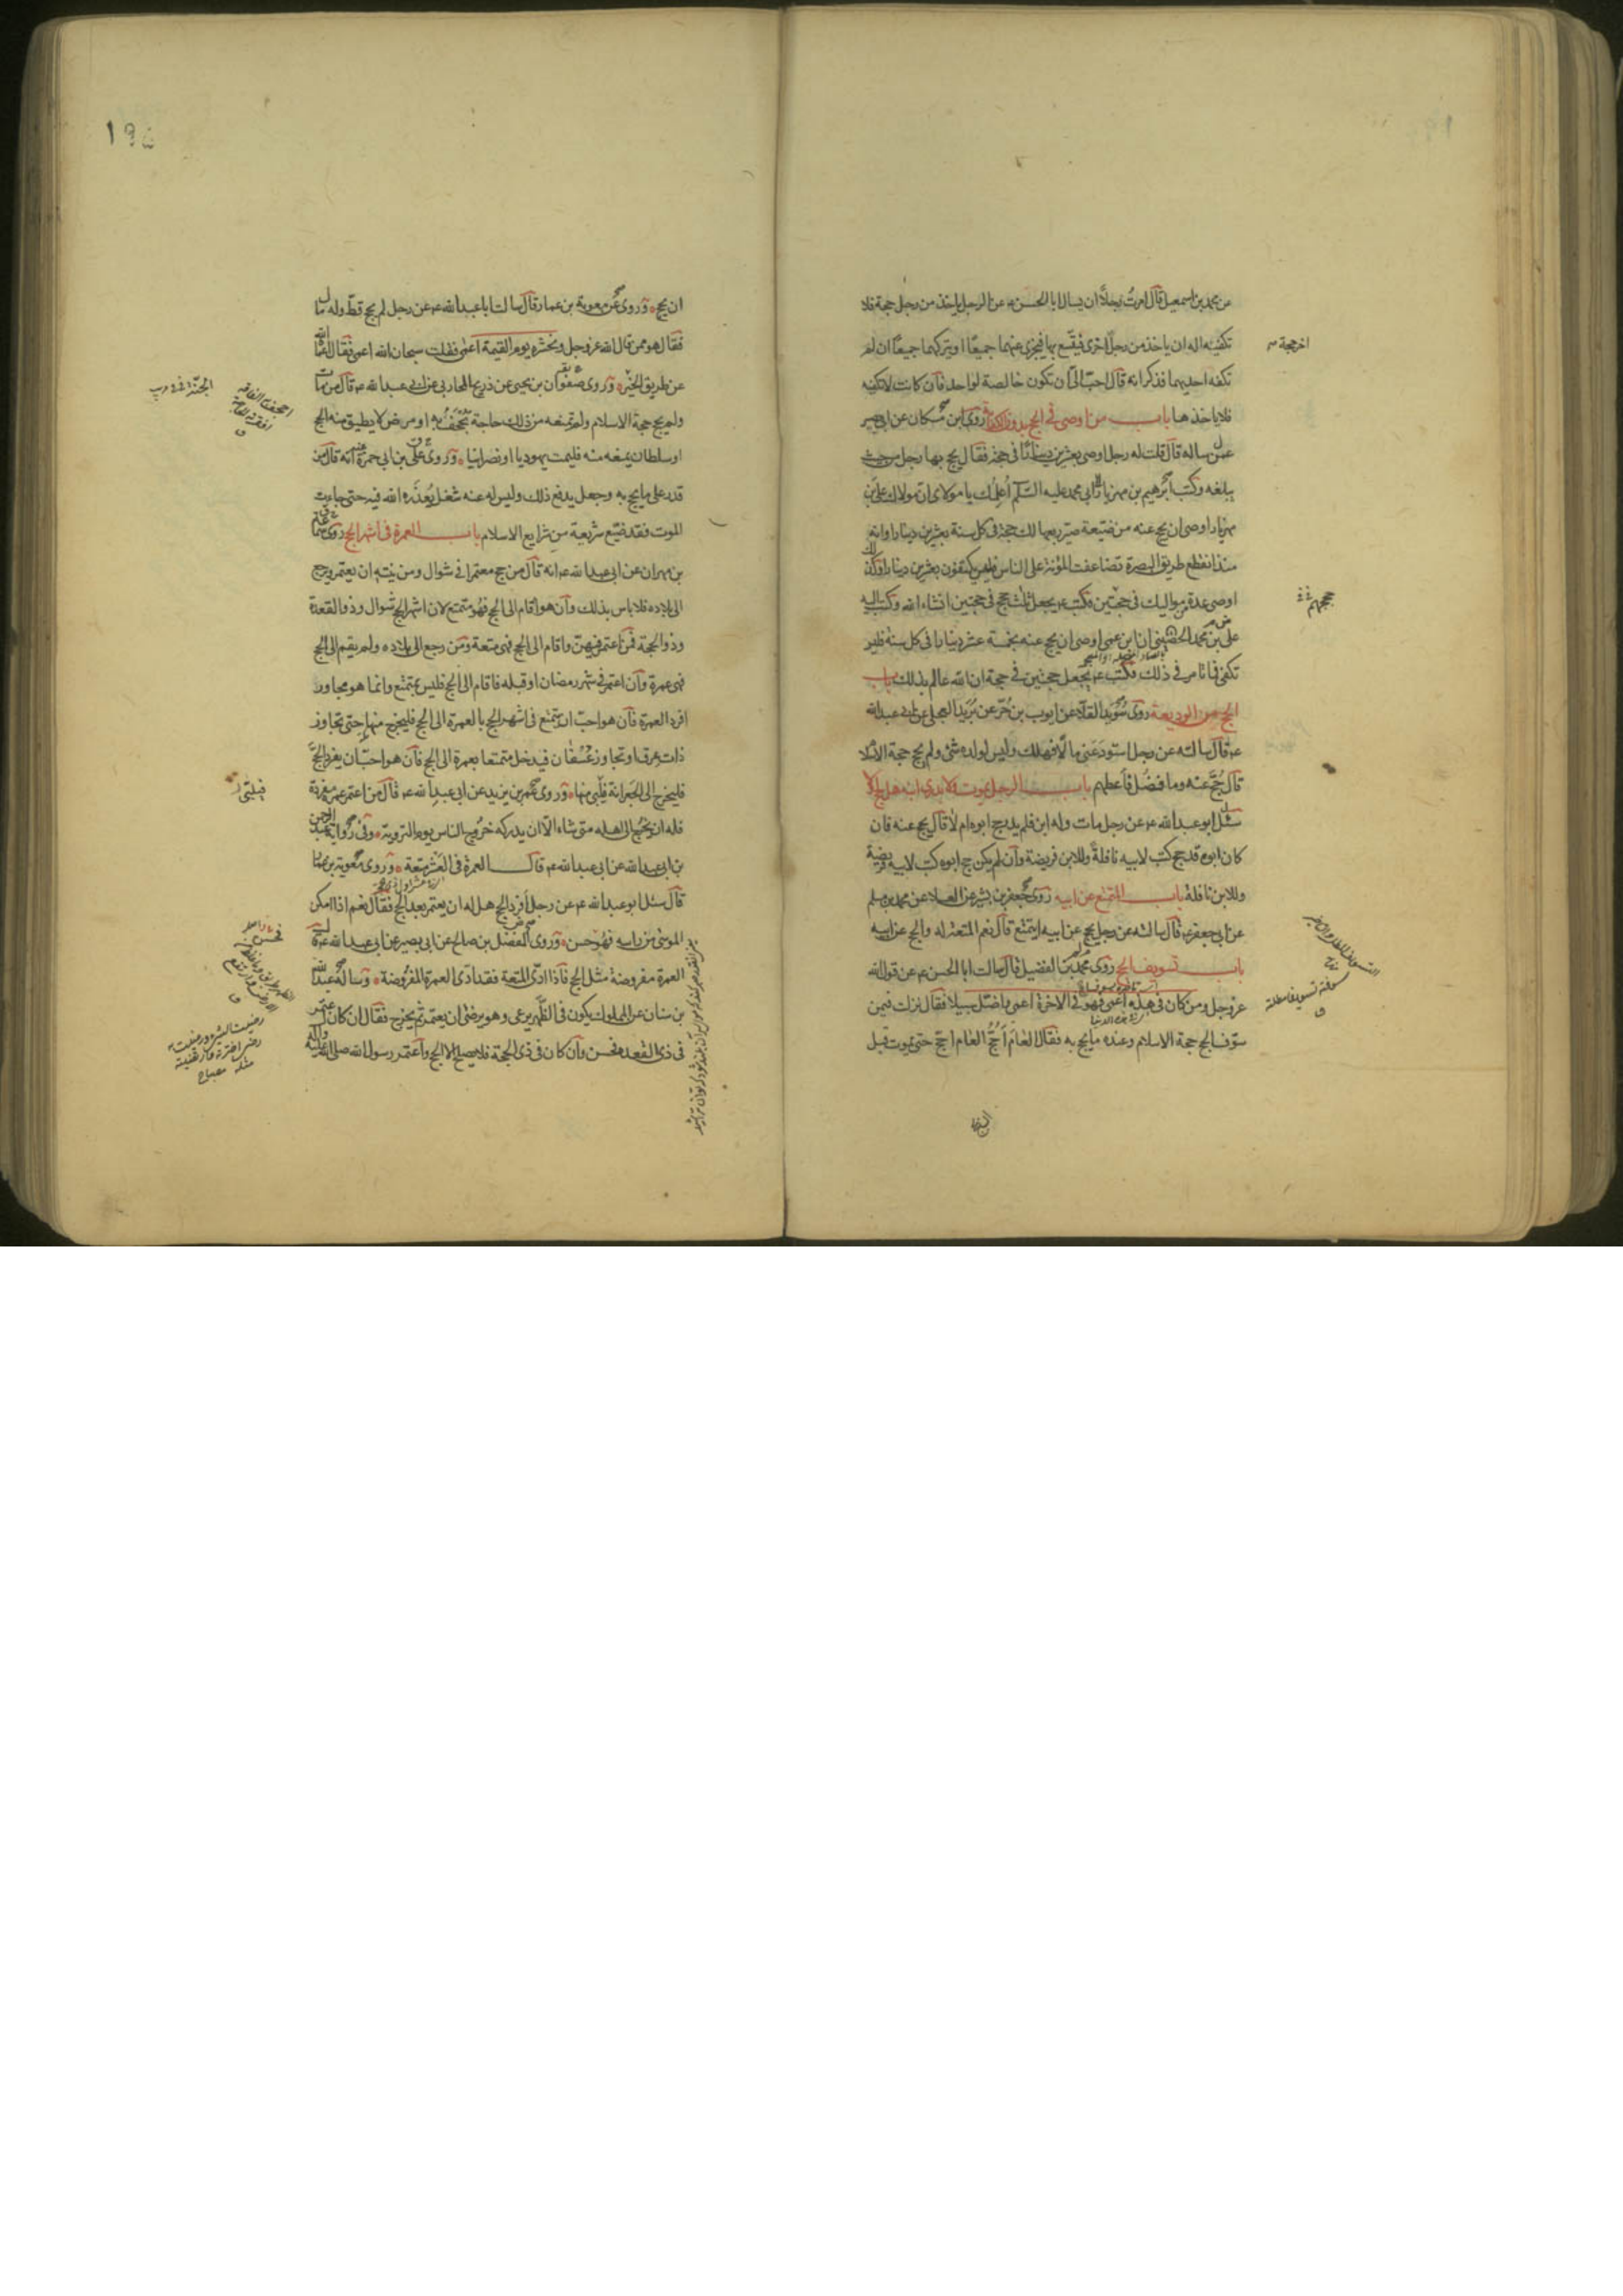 عن محمد بن اسمعيل قال امرت رجلا ان يسال ابا الحسن ع عن الرجل ياخذ من رجل حجة فلا
تكفيه اله ان ياخذ من رجل اخرى فيتسع بها فيجزى عنهما جميعا او يتركهما جميعا ان لم
تكفه احديهما فذكر انه قال احب الى ان تكون خالصة لواحد فان كانت لا تكفيه
فلا ياخذها باب من اوصى فى الحج بدون الكفاية روى ابن مسكان عن ابى بصير
عمن ساله قال قلت له رجل اوصى بعشرين دينارا فى حجة فقال يحج بها رجل من حيث
يبلغه وكتب ابرهيم بن مهزيار الى ابى محمد عليه السلم اعلمك يا مولاى ان مولاك على بن
مهزيار اوصى ان يحج عنه من ضيعة صير ربعها لك حجة فى كل سنة بعشرين دينارا وانه
منذ انقطع طريق البصرة تضاعفت المؤنة على الناس فليس يكتفون بعشرين دينارا وكذلك
اوصى عدة من مواليك فى حجتين فكتب ع يجعل ثلث حجج فى حجتين انشاء الله وكتب اليه
على بن محمد الحضينى ان ابن عمى اوصى ان يحج عنه بخمسة عشر دينارا فى كل سنة فليس
تكفى فما تامر فى ذلك فكتب ع يجعل حجتين فى حجة ان الله عالم بذلك باب
الحج من الوديعة روى سويد القلا عن ايوب بن حر عن بريد العجلى عن ابى عبد الله
ع قال سالته عن رجل استودعنى مالا فهلك وليس لولده شئ ولم يحج حجة الاسلام
قال حج عنه وما فضل فاعطهم باب الرجل يموت ولا يدرى ابنه هل حج ام لا
سئل ابو عبد الله ع عن رجل مات وله ابن فلم يدر حج ابوه ام لا قال يحج عنه فان
كان ابوه قد حج كتب لابيه نافلة وللابن فريضة وان لم يكن حج ابوه كتب لابيه فريضة
وللابن نافلة باب المتمتع عن ابيه روى جعفر بن بشير عن العلاء عن محمد بن مسلم
عن ابى جعفر ع قال سالته عن رجل يحج عن ابيه ايتمتع قال نعم المتعة له والحج عن ابيه
باب تسويف الحج روى محمد بن الفضيل قال سالت ابا الحسن ع عن قول الله
عز وجل ومن كان فى هذه اعمى فهو فى الاخرة اعمى واضل سبيلا فقال نزلت فيمن
سوف الحج حجة الاسلام وعنده ما يحج به فقال العام احج العام احج حتى يموت قبل
اخر حجة
حججهم
١٩٥
ان يحج وروى عن معوية بن عمار قال سالت ابا عبد الله ع عن رجل لم يحج قط وله مال
فقال هو ممن قال الله عز وجل ونحشره يوم القيمة اعمى فقلت سبحان الله اعمى فقال اعماه الله
عن طريق الخير وروى صفوان بن يحيى عن ذريح المحاربى عن ابى عبد الله ع قال من مات
ولم يحج حجة الاسلام ولم تمنعه من ذلك حاجة تجحف به او مرض لا يطيق منه الحج
او سلطان يمنعه منه فليمت يهوديا او نصرانيا وروى على بن ابى حمزة عنه انه قال من
قدر على ما يحج به وجعل يدفع ذلك وليس له عنه شغل يعذره الله فيه حتى جاءت
الموت فقد ضيع شريعة من شرايع الاسلام باب العمرة فى اشهر الحج روى سماعة
بن مهران عن ابى عبد الله ع انه قال من حج معتمرا فى شوال ومن نيته ان يعتمر ويرجع
الى بلاده فلا باس بذلك وان هو اقام الى الحج فهو متمتع لان اشهر الحج شوال وذو القعدة
وذو الحجة فمن اعتمر فيهن واقام الى الحج فهى متعة ومن رجع الى بلاده ولم يقم الى الحج
فهى عمرة وان اعتمر فى شهر رمضان او قبله فاقام الى الحج فليس بمتمتع وانما هو مجاور
افرد العمرة فان هو احب ان يتمتع فى اشهر الحج بالعمرة الى الحج فليخرج منها حتى تجاوز
ذات عرق او تجاوز عسفان فيدخل متمتعا بعمرة الى الحج فان هو احب ان يفرد الحج
فليخرج الى الجعرانة فيلبى منها وروى عمر بن يزيد عن ابى عبد الله ع قال من اعتمر عمرة مفردة
فله ان يخرج الى اهله متى شاء الا ان يدركه خروج الناس يوم التروية وفى رواية عبد الرحمن
بن ابى عبد الله عن ابى عبد الله ع قال العمرة فى العشر متعة وروى معوية بن عمار
قال سئل ابو عبد الله ع عن رجل افرد الحج هل له ان يعتمر بعد الحج فقال نعم اذا امكن
الموسى من راسه فهو حسن وروى المفضل بن صالح عن ابى بصير عن ابى عبد الله ع قال
العمرة مفروضة مثل الحج فاذا ادى المتعة فقد ادى العمرة المفروضة وساله عبد الله
بن سنان عن المملوك يكون فى الظهر يرعى وهو يرضى ان يعتمر ثم يخرج فقال ان كان اعتمر
فى ذى القعدة فحسن وان كان فى ذى الحجة فلا يصلح الا الحج واعتمر رسول الله صلى الله عليه واله
فيلبى